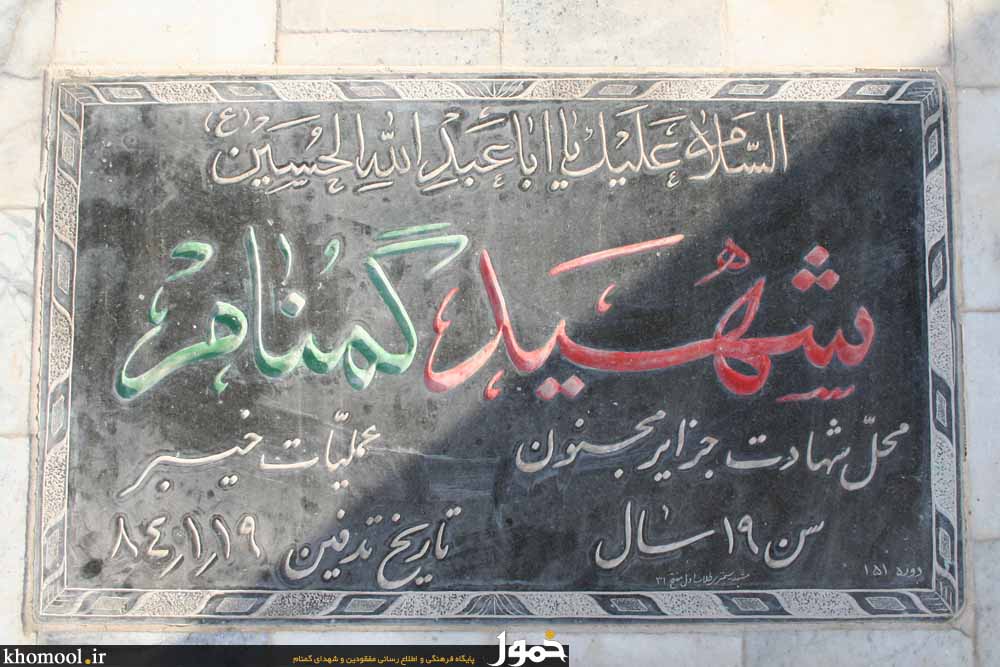 السلام علیک یا اباعبدالله الحسین (ع)
شهید گمنام
محلّ شهادت جزایر مجنون عملیّات خیبر
سن ۱۹ سال تاریخ تدفین ۸۴/۱/۱۹
دوره ۱۵۱
khomool.ir
پایگاه فرهنگی و اطلاع رسانی مفقودین و شهدای گمنام
خمول